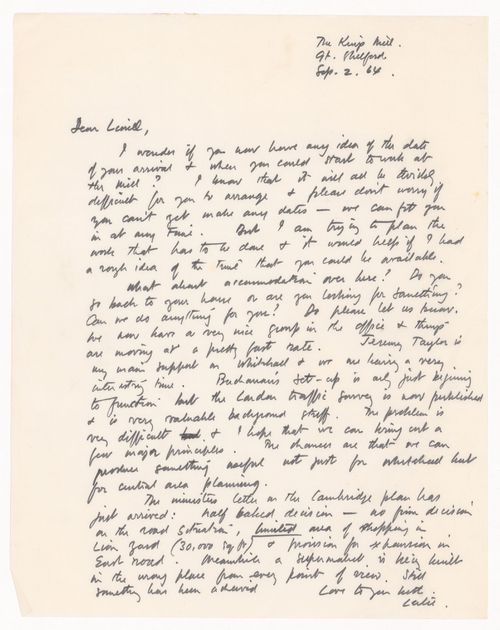 The Kings Mill.
Gt. Shelford
Sep. 2. 64.
Dear Lionell,
I wonder if you now have any idea of the date
of your arrival & when you could start to work at
the Mill? I know that it will all be terribly
difficult for you to arrange & please don't worry if
you can't yet make any dates — we can fit you
in at any time. But I am trying to plan the
work that has to be done & it would help if I had
a rough idea of the time that you could be available.
What about accommodation over here? Do you
go back to your house or are you looking for something?
Can we do anything for you? Do please let us know.
We now have a very nice group in the office & things
are moving at a pretty fast rate. Jeremy Taylor is
my main support on Whitehall & we are having a very
interesting time. Buchanan's set-up is only just beginning
to function but the London traffic survey is now published
& is very valuable background stuff. The problem is
very difficult & I hope that we can bring out a
few major principles. The chances are that we can
produce something useful not just for Whitehall but
for central area planning.
The ministers letter on the Cambridge plan has
just arrived: half baked decision — no firm decision
on the road situation, limited area of shopping in
Lion Yard (30,000 sq ft) & provision for expansion in
East Road. Meanwhile a supermarket is being built
in the wrong place from every point of view. Still
something has been achieved Love to you both.
Leslie.